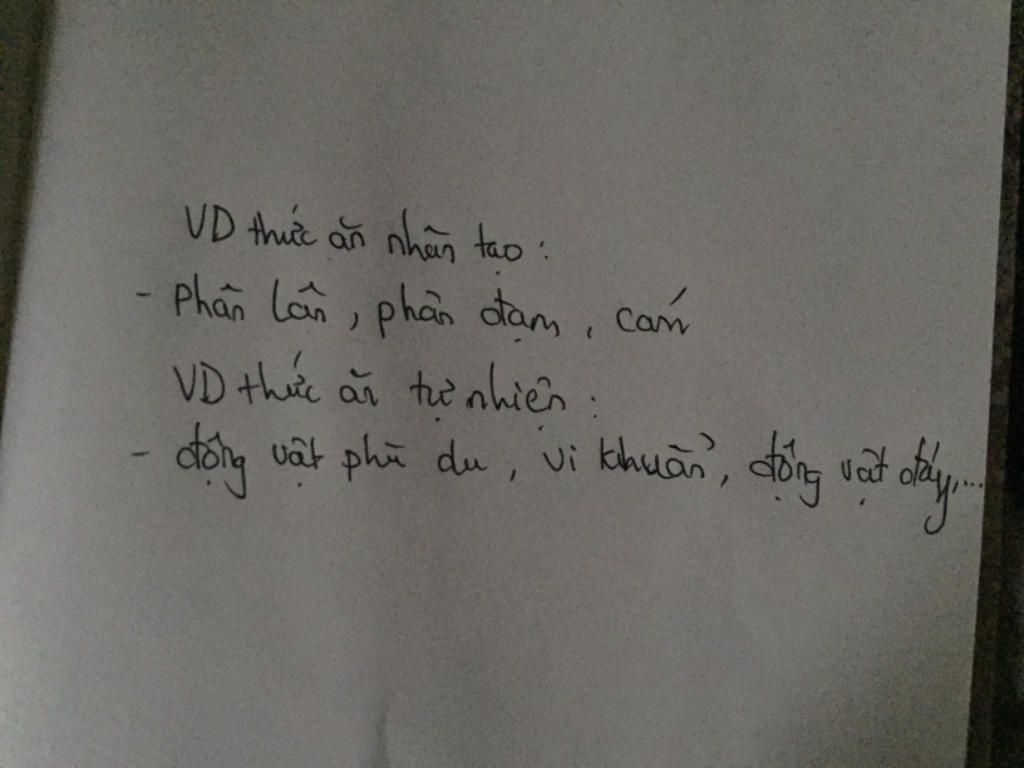 VD thức ăn nhân tạo :
- Phân lân , phân đạm , cám
VD thức ăn tự nhiên :
- động vật phù du , vi khuẩn , động vật đáy,...